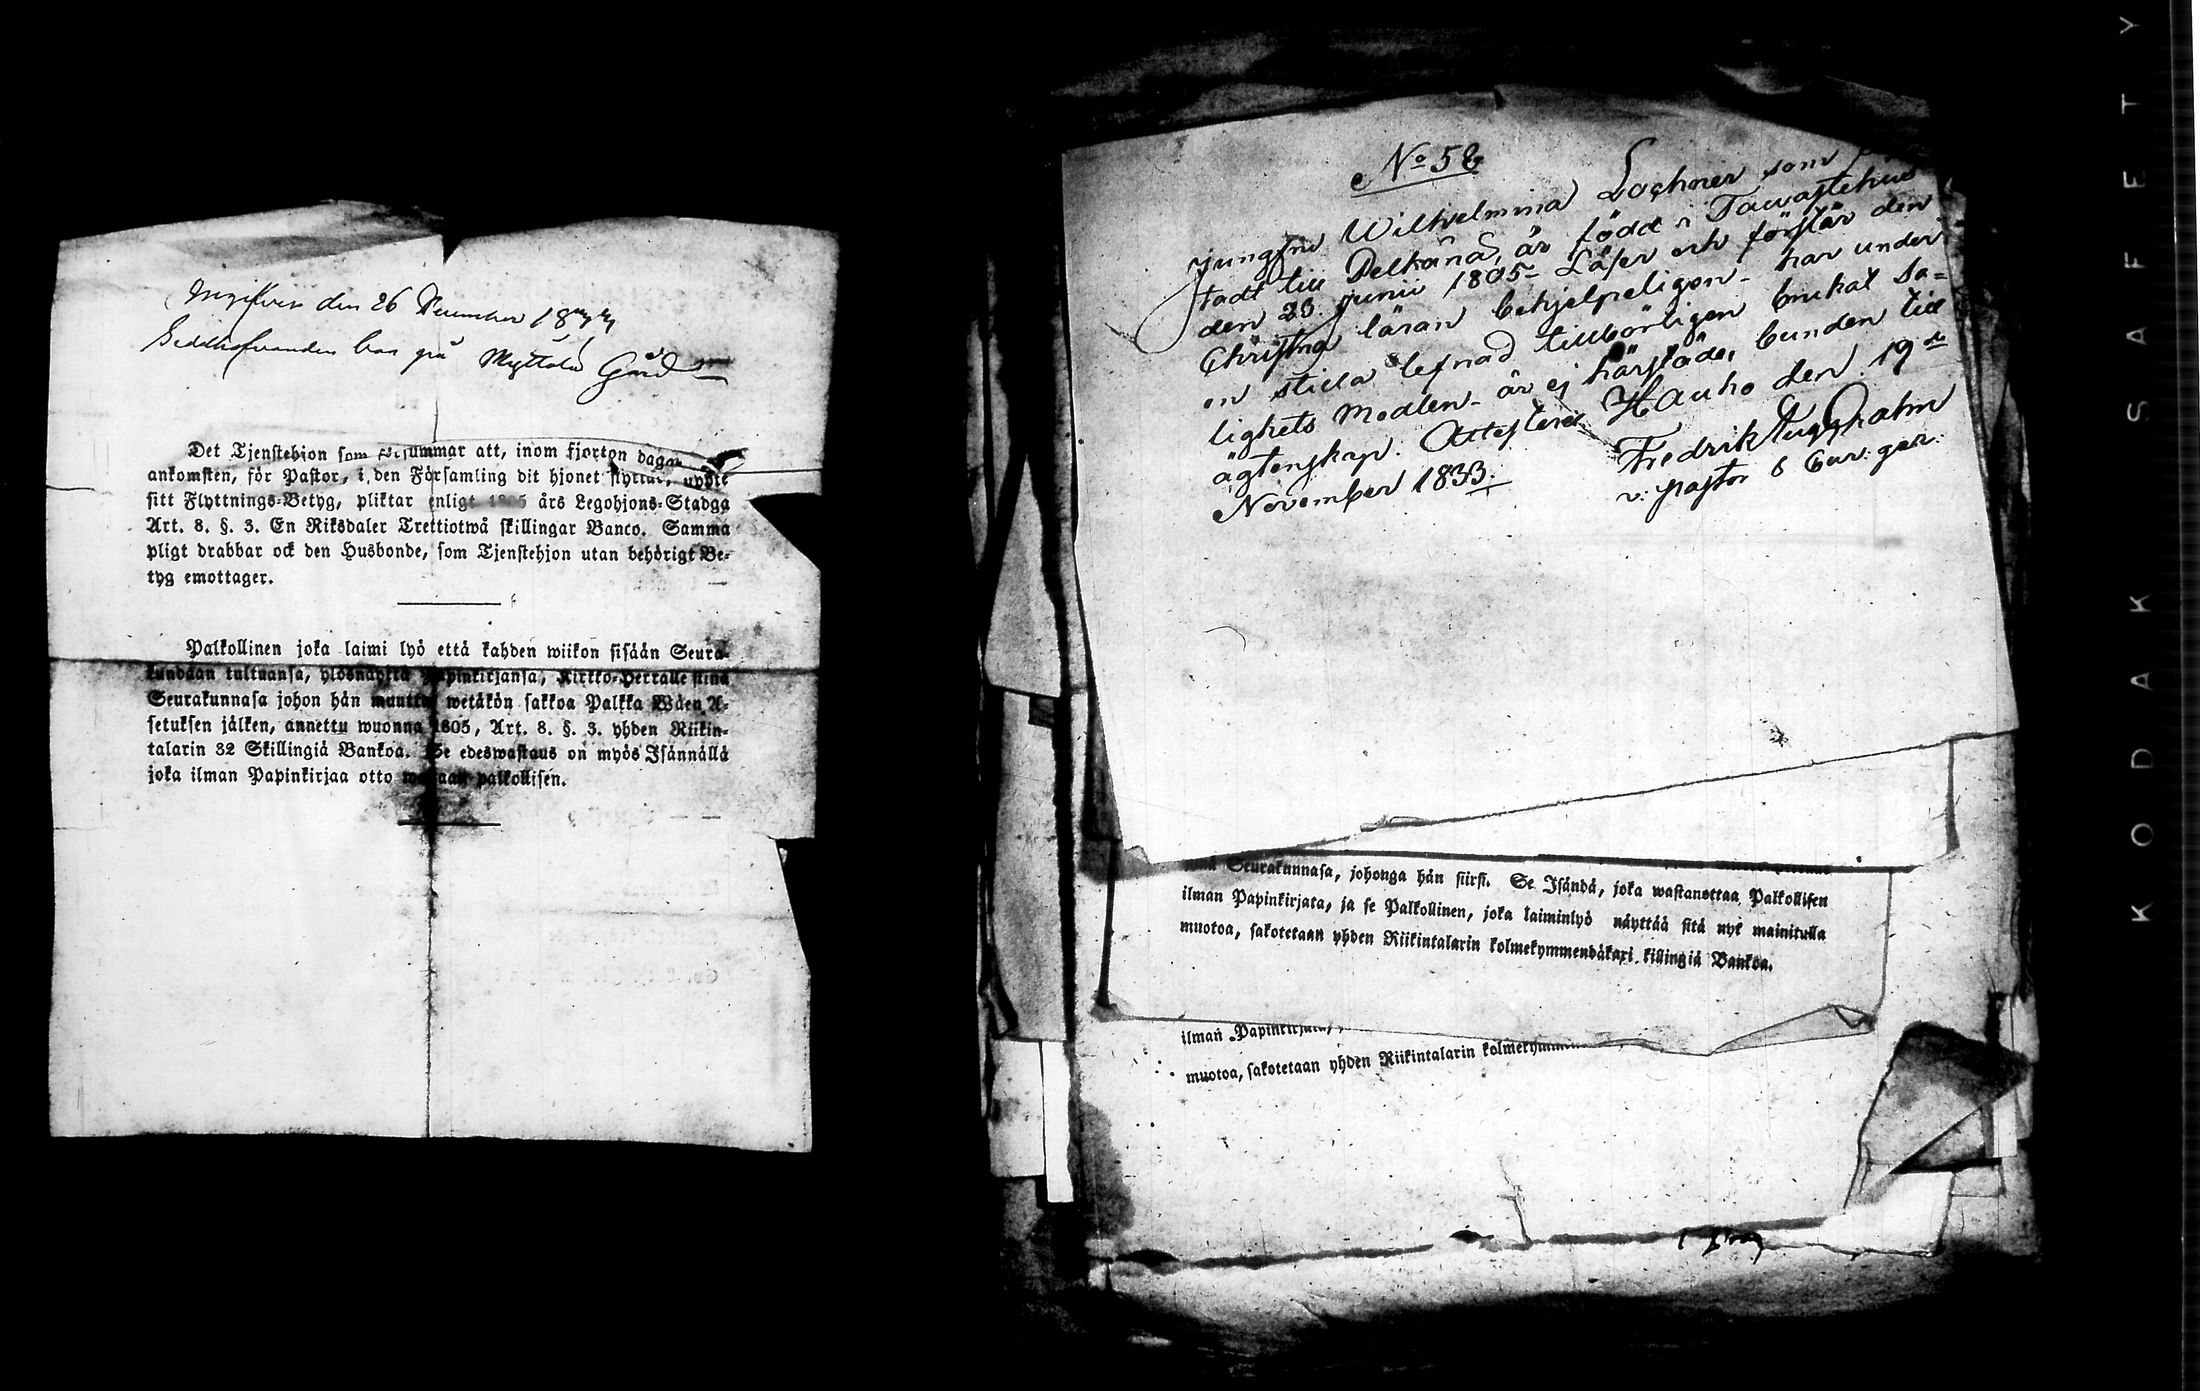 den 26 December
Geddhofvanden bor på Gård
Det Tjenstehion som försummar att, inom fjorton dagar
ankomsten, för Pastor, i den Församling dit hjonet flyttat, uppte
sitt Flyttnings-Betyg, pliktar enligt 1805 års Legohjons-Stadga
Art. 8. §. 3. En Riksdaler Trettiotwå skillingar Banco. Samma
pligt drabbar ock den Husbonde, som Tjenstehjon utan behörigt Be-
tyg emottager.
Palkollinen joka laimi lyö että kahden wiikon sisään Seura-
kundaan tultuansa, ylösnäyttä Papinkirjansa, Kirkko-Herralle siinä
Seurakunnasa johon hän muuttu, wetäkön sakkoa Palkka Wäen A-
setuksen jälken, annettu wuonna 1805, Art. 8. §. 3. yhden Riikin-
talarin 32 Skillingiä Bankoa. Se edeswastaus on myös Isännällä
joka ilman Papinkirjaa otto palkollisen.
No 58
Jungfru Wilhelmina Lochner som
tadt till Pelkänä, är född i Tawastehus
den 23 Junii 1805 - Läser och förstår den
Christna läran behjelpeligen - har under
en stilla lefnad tillbörligen brukat Sa-
lighets Medlen - är ej härstädes bunden till
ägtenskap. Attesterar Hauho den 19de
November 1833.
Fredrik
v. pastor
Seurakunnasa, johonga hän siirsi. Se Isändä, joka wastanottaa Palkollisen
ilman Papinkirjata, ja se Palkollinen, joka laiminlyö näyttää sitä nyt mainitulla
muotoa, sakotetaan yhden Riikintalarin kolmekymmendäkaxi killingiä Bankoa.
ilman Papinkirjata,
muotoa, sakotetaan yhden Riikintalarin
KODAK SAFETY